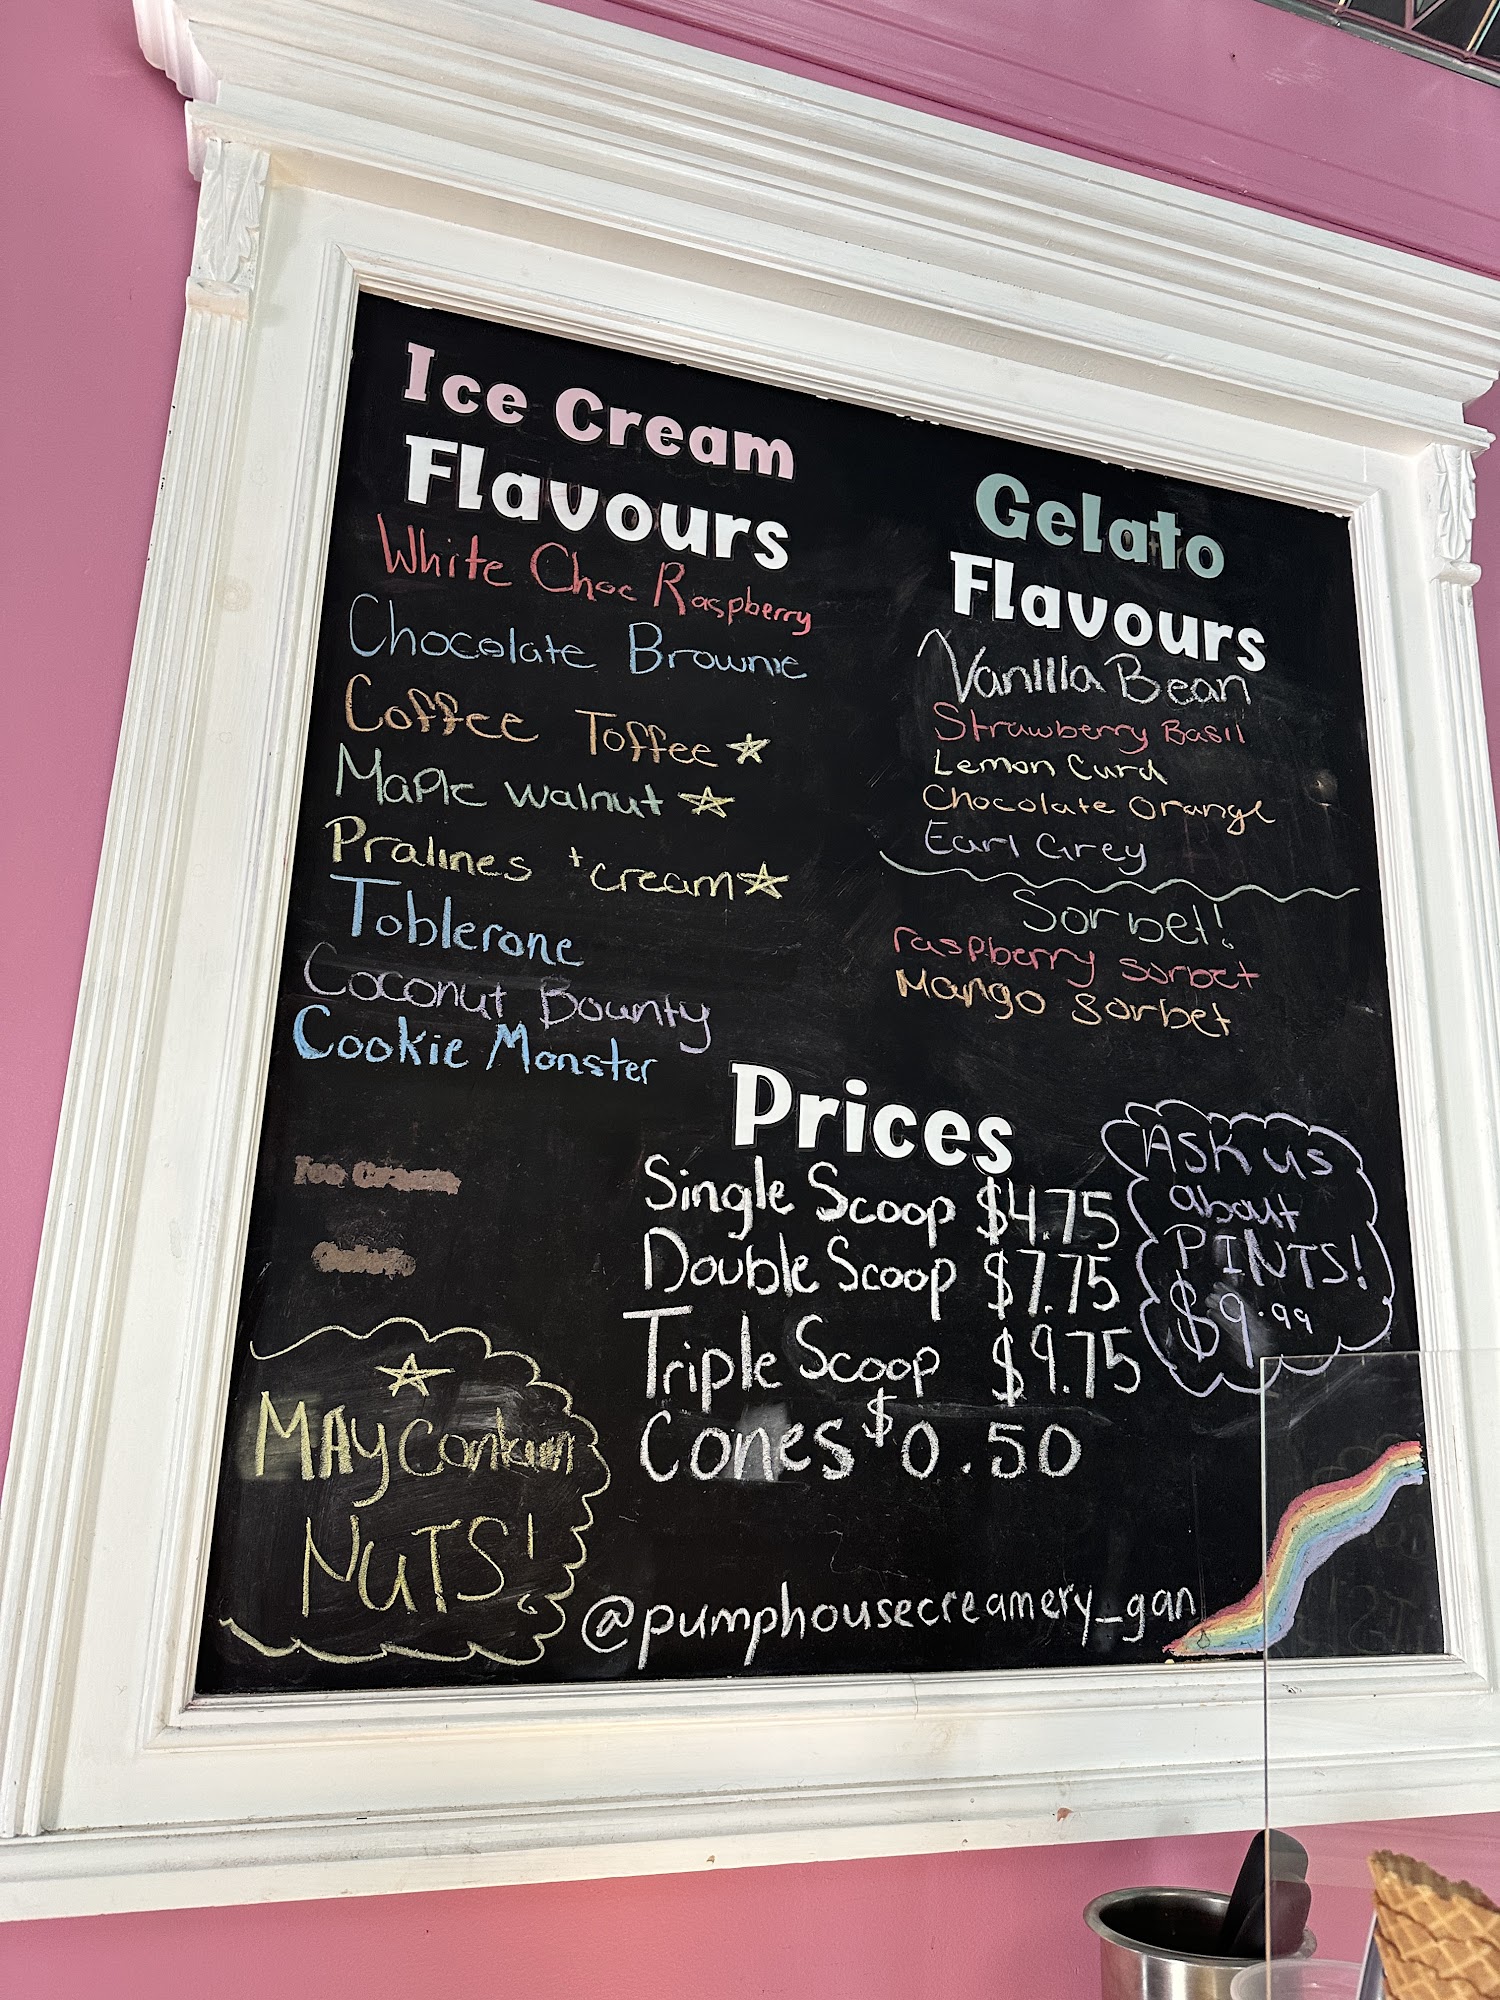 Ice Cream
Flavours
White Choc Raspberry
Chocolate Brownie
Coffee Toffee ☆
Maple walnut ☆
Pralines + cream ☆
Toblerone
Coconut Bounty
Cookie Monster
Gelato
Flavours
Vanilla Bean
Strawberry Basil
Lemon Curd
Chocolate Orange
Earl Grey
Sorbet!
raspberry sorbet
Mango Sorbet
Prices
Single Scoop $4.75
Double Scoop $7.75
Triple Scoop $9.75
Cones $0.50
Ask us
about
PINTS!
$9.99
☆
MAY Contain
NUTS!
@pumphousecreamery_gan